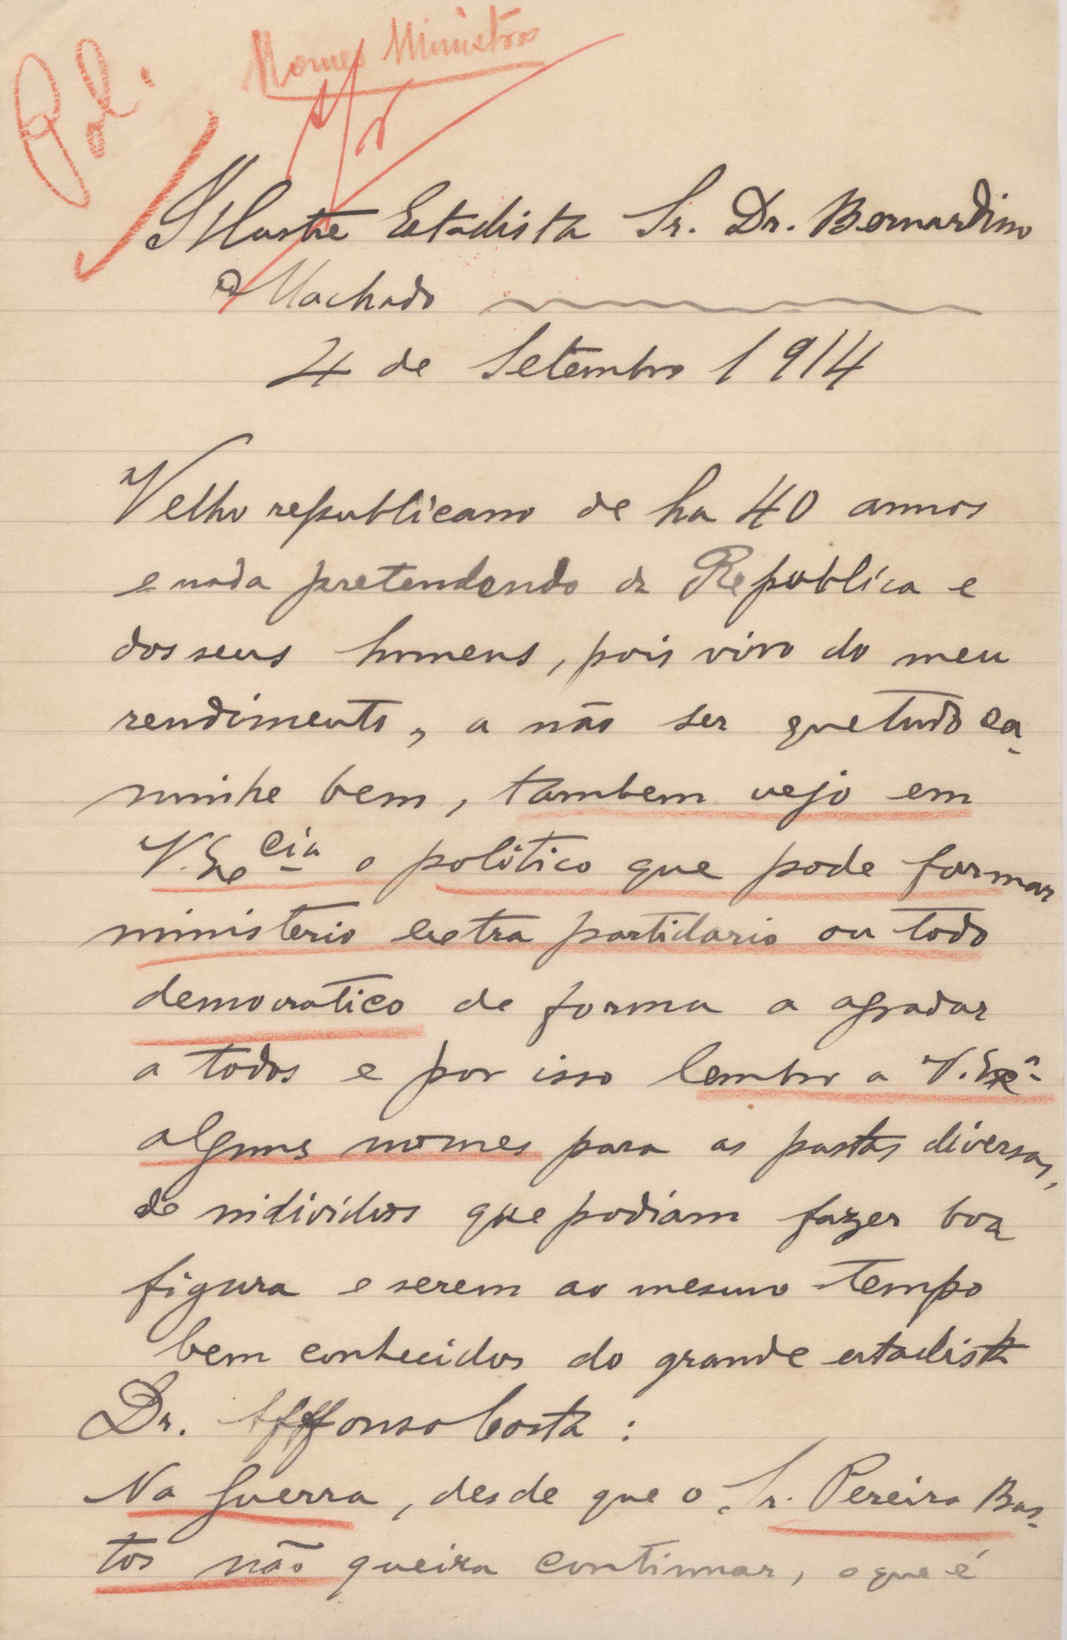 Pol.
Nomes Ministros
Illustre Estadista Sr. Dr. Bernardino
Machado
4 de Setembro 1914
Velho republicano de ha 40 annos
e nada pretendendo da Republica e
dos seus homens, pois vivo do meu
rendimento, a não ser que tudo ca-
minhe bem, tambem vejo em
V. Excia o politico que pode formar
ministerio extra partidario ou todo
democratico de forma a agradar
a todos e por isso lembro a V. Exa
alguns nomes para as pastas diversas,
de individuos que podiam fazer boa
figura e serem ao mesmo tempo
bem conhecidos do grande estadista
Dr. Affonso Costa :
Na Guerra, desde que o Sr. Pereira Bas-
tos não queira continuar, o que é